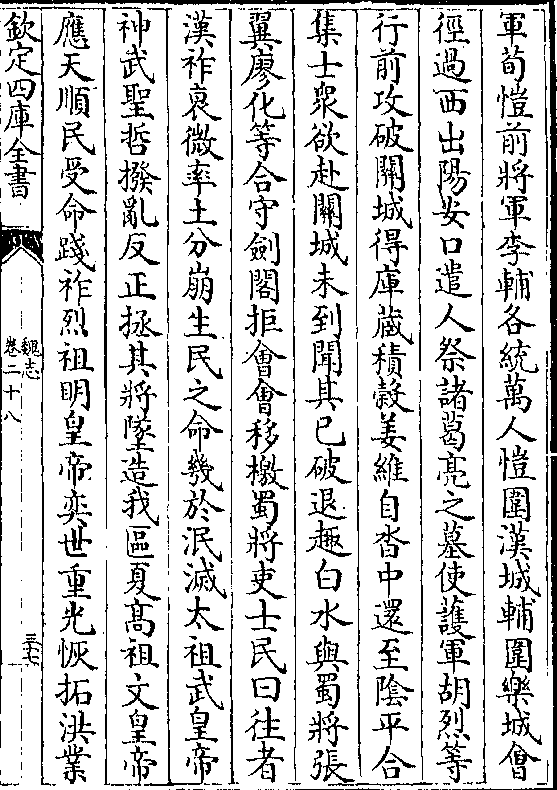 軍荀愷前將軍李輔各統萬人愷圍漢城輔圍樂城會
徑過西出陽安口遣人祭諸葛亮之墓使護軍胡烈等
行前攻破關城得庫藏積穀姜維自沓中還至隂平合
集士衆欲赴關城未到聞其已破退趣白水與蜀將張
翼廖化等合守劍閣拒會會移檄蜀將吏士民曰往者
漢祚衰微率土分崩生民之命幾於泯滅太祖武皇帝
神武聖哲撥亂反正拯其將墜造我區夏髙祖文皇帝
應天順民受命踐祚烈祖明皇帝奕世重光恢拓洪業
欽定四庫全書
魏志
卷二十八
三七